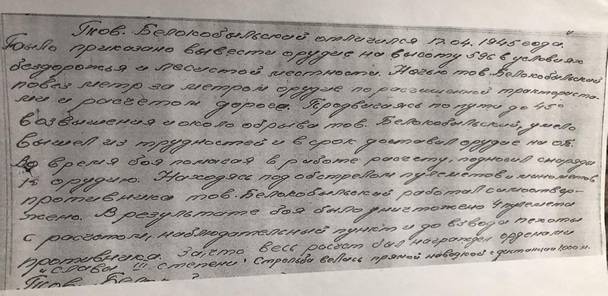 Тов. Белокобыльский отличился 17.04.1945 года.
Было приказано вывести орудие на высоту 596 в условиях
бездорожья и лесистой местности. Ночью тов. Белокобыльский
повез метр за метром орудие по расчищенной трактористами
ми и расчетом дороге. Продвигаясь по пути до 45°
возвышения и около обрыва тов. Белокобыльский, умело
вышел из трудностей и в срок доставил орудие на ОП.
Во время боя помогая в работе расчету, подносил снаряда
к орудию. Находясь под обстрелом пулеметов и минометов
противника тов. Белокобыльский работал самоотвер-
жено. В результате боя было уничтожено 4 пулемета
с расчетом, наблюдательный пункт и до взвода пехоты
противника. За это весь расчет был награжден орденами
"Слава" III степени. Стрельба велась прямой наводкой с дистанции м.
Тов.